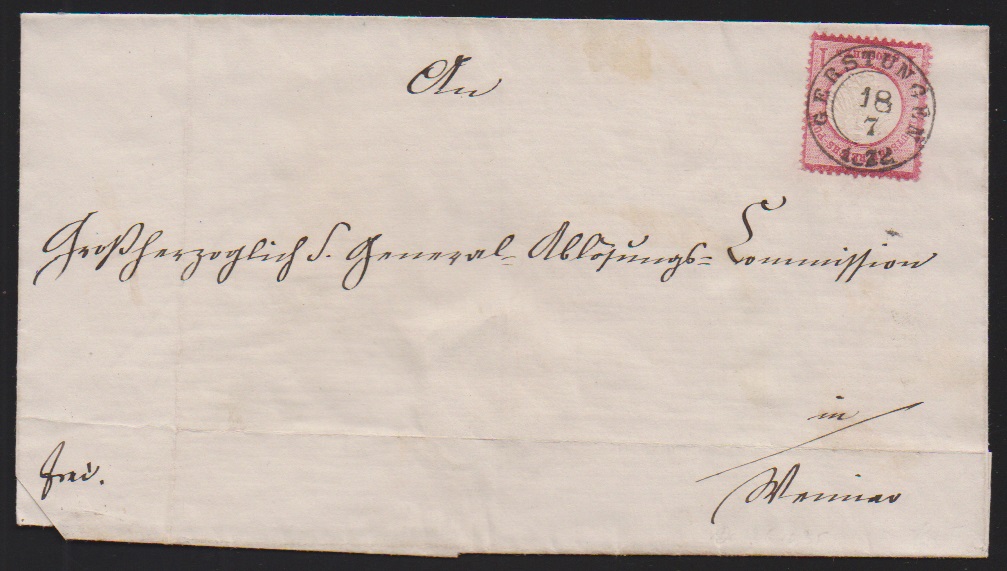 An
GERSTUNGEN
18
7
1872
Großherzoglich S. General-Ablösungs-Commission
in
Weimar
frei.